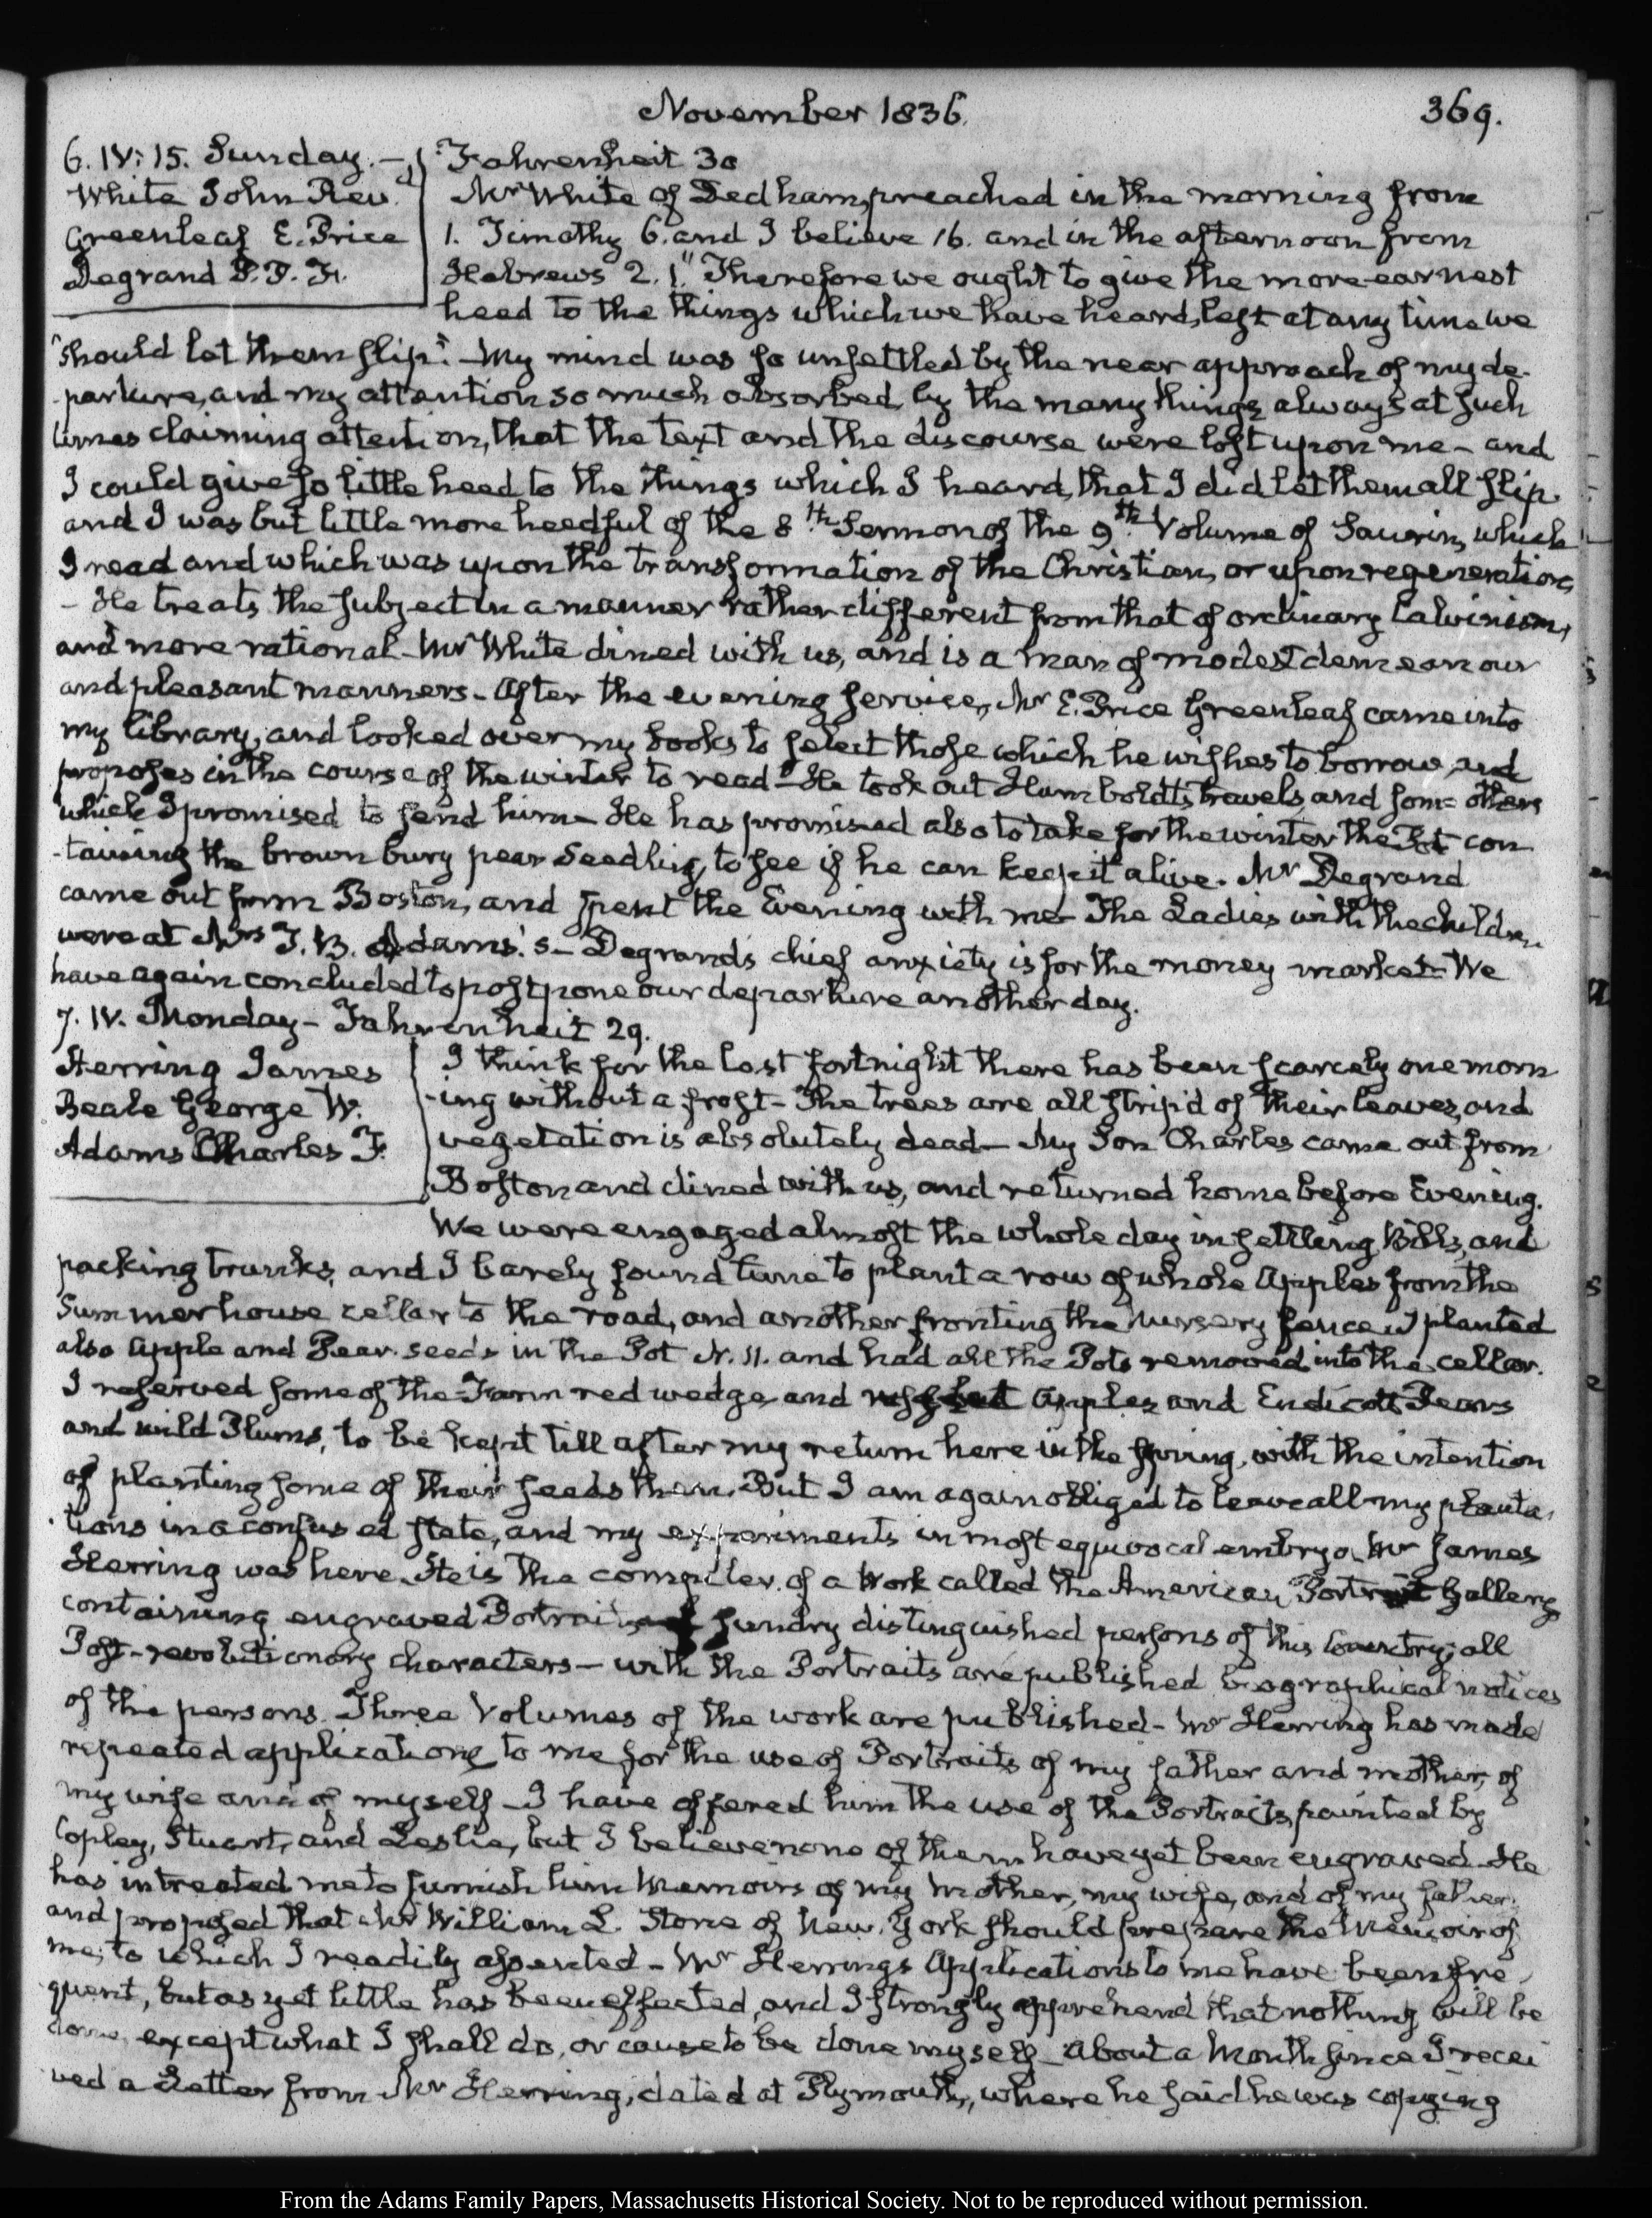 November 1836.
369.
6. IV: 15. Sunday. –
White John Rev.d
Greenleaf E. Price
Degrand P. P. F.
Fahrenheit 30
Mr White of Dedham, preached in the morning from
1. Timothy 6. and I believe 16. and in the afternoon from
Hebrews 2. 1. "Therefore we ought to give the more earnest
heed to the things which we have heard, lest at any time we
"should let them slip". – My mind was so unsettled by the near approach of my de-
-parture, and my attention so much absorbed, by the many things always at such
times claiming attention, that the text and the discourse were lost upon me – and
I could give so little heed to the things which I heard, that I did let them all slip.
and I was but little more heedful of the 8th Sermon of the 9th Volume of Saurin, which
I read and which was upon the transformation of the Christian, or upon regeneration,
– He treats the subject in a manner rather different from that of ordinary Calvinism,
and more rational – Mr White dined with us, and is a man of modest demeanour
and pleasant manners – After the evening service, Mr E. Price Greenleaf came into
my library, and looked over my books to select those which he wishes to borrow and
proposes in the course of the winter to read – He took out Humboldt's travels and some others
which I promised to send him – He has promised also to take for the winter the Pot con
-taining the brown bury pear Seedling, to see if he can keep it alive. Mr Degrand
came out from Boston, and spent the Evening with me – The Ladies with the children
were at Mrs T. B. Adams's – Degrand's chief anxiety is for the money market – We
have again concluded to postpone our departure another day.
7. IV. Monday – Fahrenheit 29.
Herring James
Beale George W.
Adams Charles F.
I think for the last fortnight there has been scarcely one morn
-ing without a frost – The trees are all strip'd of their leaves, and
vegetation is absolutely dead – My Son Charles came out from
Boston and dined with us, and returned home before Evening.
We were engaged almost the whole day in settling Bills, and
packing trunks, and I barely found time to plant a row of whole Apples from the
Summer house cellar to the road, and another fronting the Nursery fence I planted
also Apple and Pear seeds in the Pot N. 11. and had all the Pots removed into the cellar.
I reserved some of the Farm red wedge and Apples and Endicott Pears
and wild Plums, to be kept till after my return here in the Spring, with the intention
of planting some of their seeds then. But I am again obliged to leave all my planta-
-tions in a confused state, and my experiments in most equivocal embryo. Mr James
Herring was here. He is the compiler of a Work called the American Portrait Gallery
containing engraved Portraits of sundry distinguished persons of this Country; all
Post-revolutionary characters – with the Portraits are published biographical notices
of the persons. Three Volumes of the work are published – Mr Herring has made
repeated applications to me for the use of Portraits of my father and mother, of
my wife and of myself – I have offered him the use of the Portraits, painted by
Copley, Stuart, and Leslie, but I believe none of them have yet been engraved. He
has intreated me to furnish him Memoirs of my Mother, my wife, and of my father.
and proposed that Mr William L. Stone of New York should prepare the Memoir of
me, to which I readily assented – Mr Herring's Applications to me have been fre-
quent, but as yet little has been effected, and I strongly apprehend that nothing will be
done, except what I shall do, or cause to be done myself – About a Month since I recei
ved a Letter from Mr Herring, dated at Plymouth, where he said he was copying
From the Adams Family Papers, Massachusetts Historical Society. Not to be reproduced without permission.